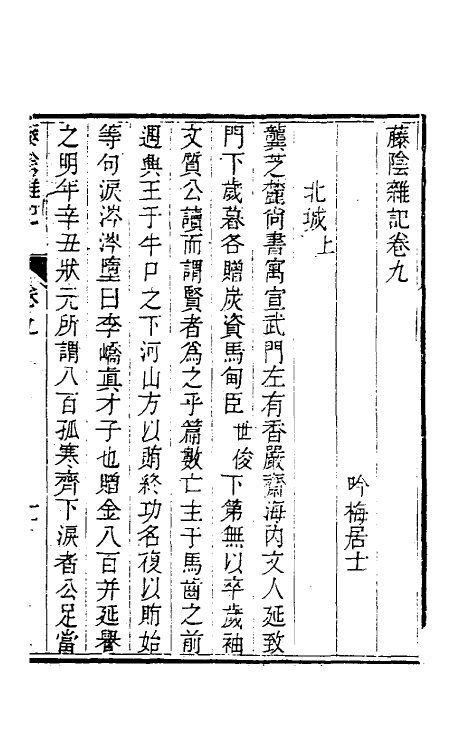 藤陰雜記卷九
吟梅居士
北城上
龔芝麓尚書寓宣武門左有香嚴齋海內文人延致
門下歲暮各贈炭資馬甸臣世俊下第無以卒歲袖
文質公讀而謂賢者爲之乎篇數亡主于馬齒之前
遇興王于牛口之下河山方以賄終功名復以賄始
等句淚涔涔墮曰李嶠真才子也贈金八百并延譽
之明年辛丑狀元所謂八百孤寒齊下淚者公足當